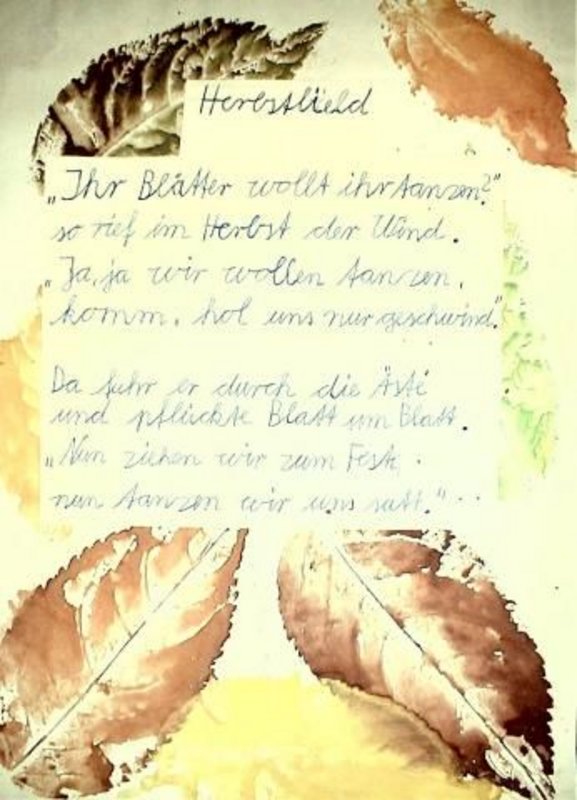 Herbstlield
„Ihr Blätter wollt ihr tanzen?"
so rief im Herbst der Wind.
„Ja, ja wir wollen tanzen,
komm, hol uns nur geschwind."
Da fuhr er durch die Äste
und pflückte Blatt um Blatt.
„Nun ziehen wir zum Fest,
nun tanzen wir uns satt."